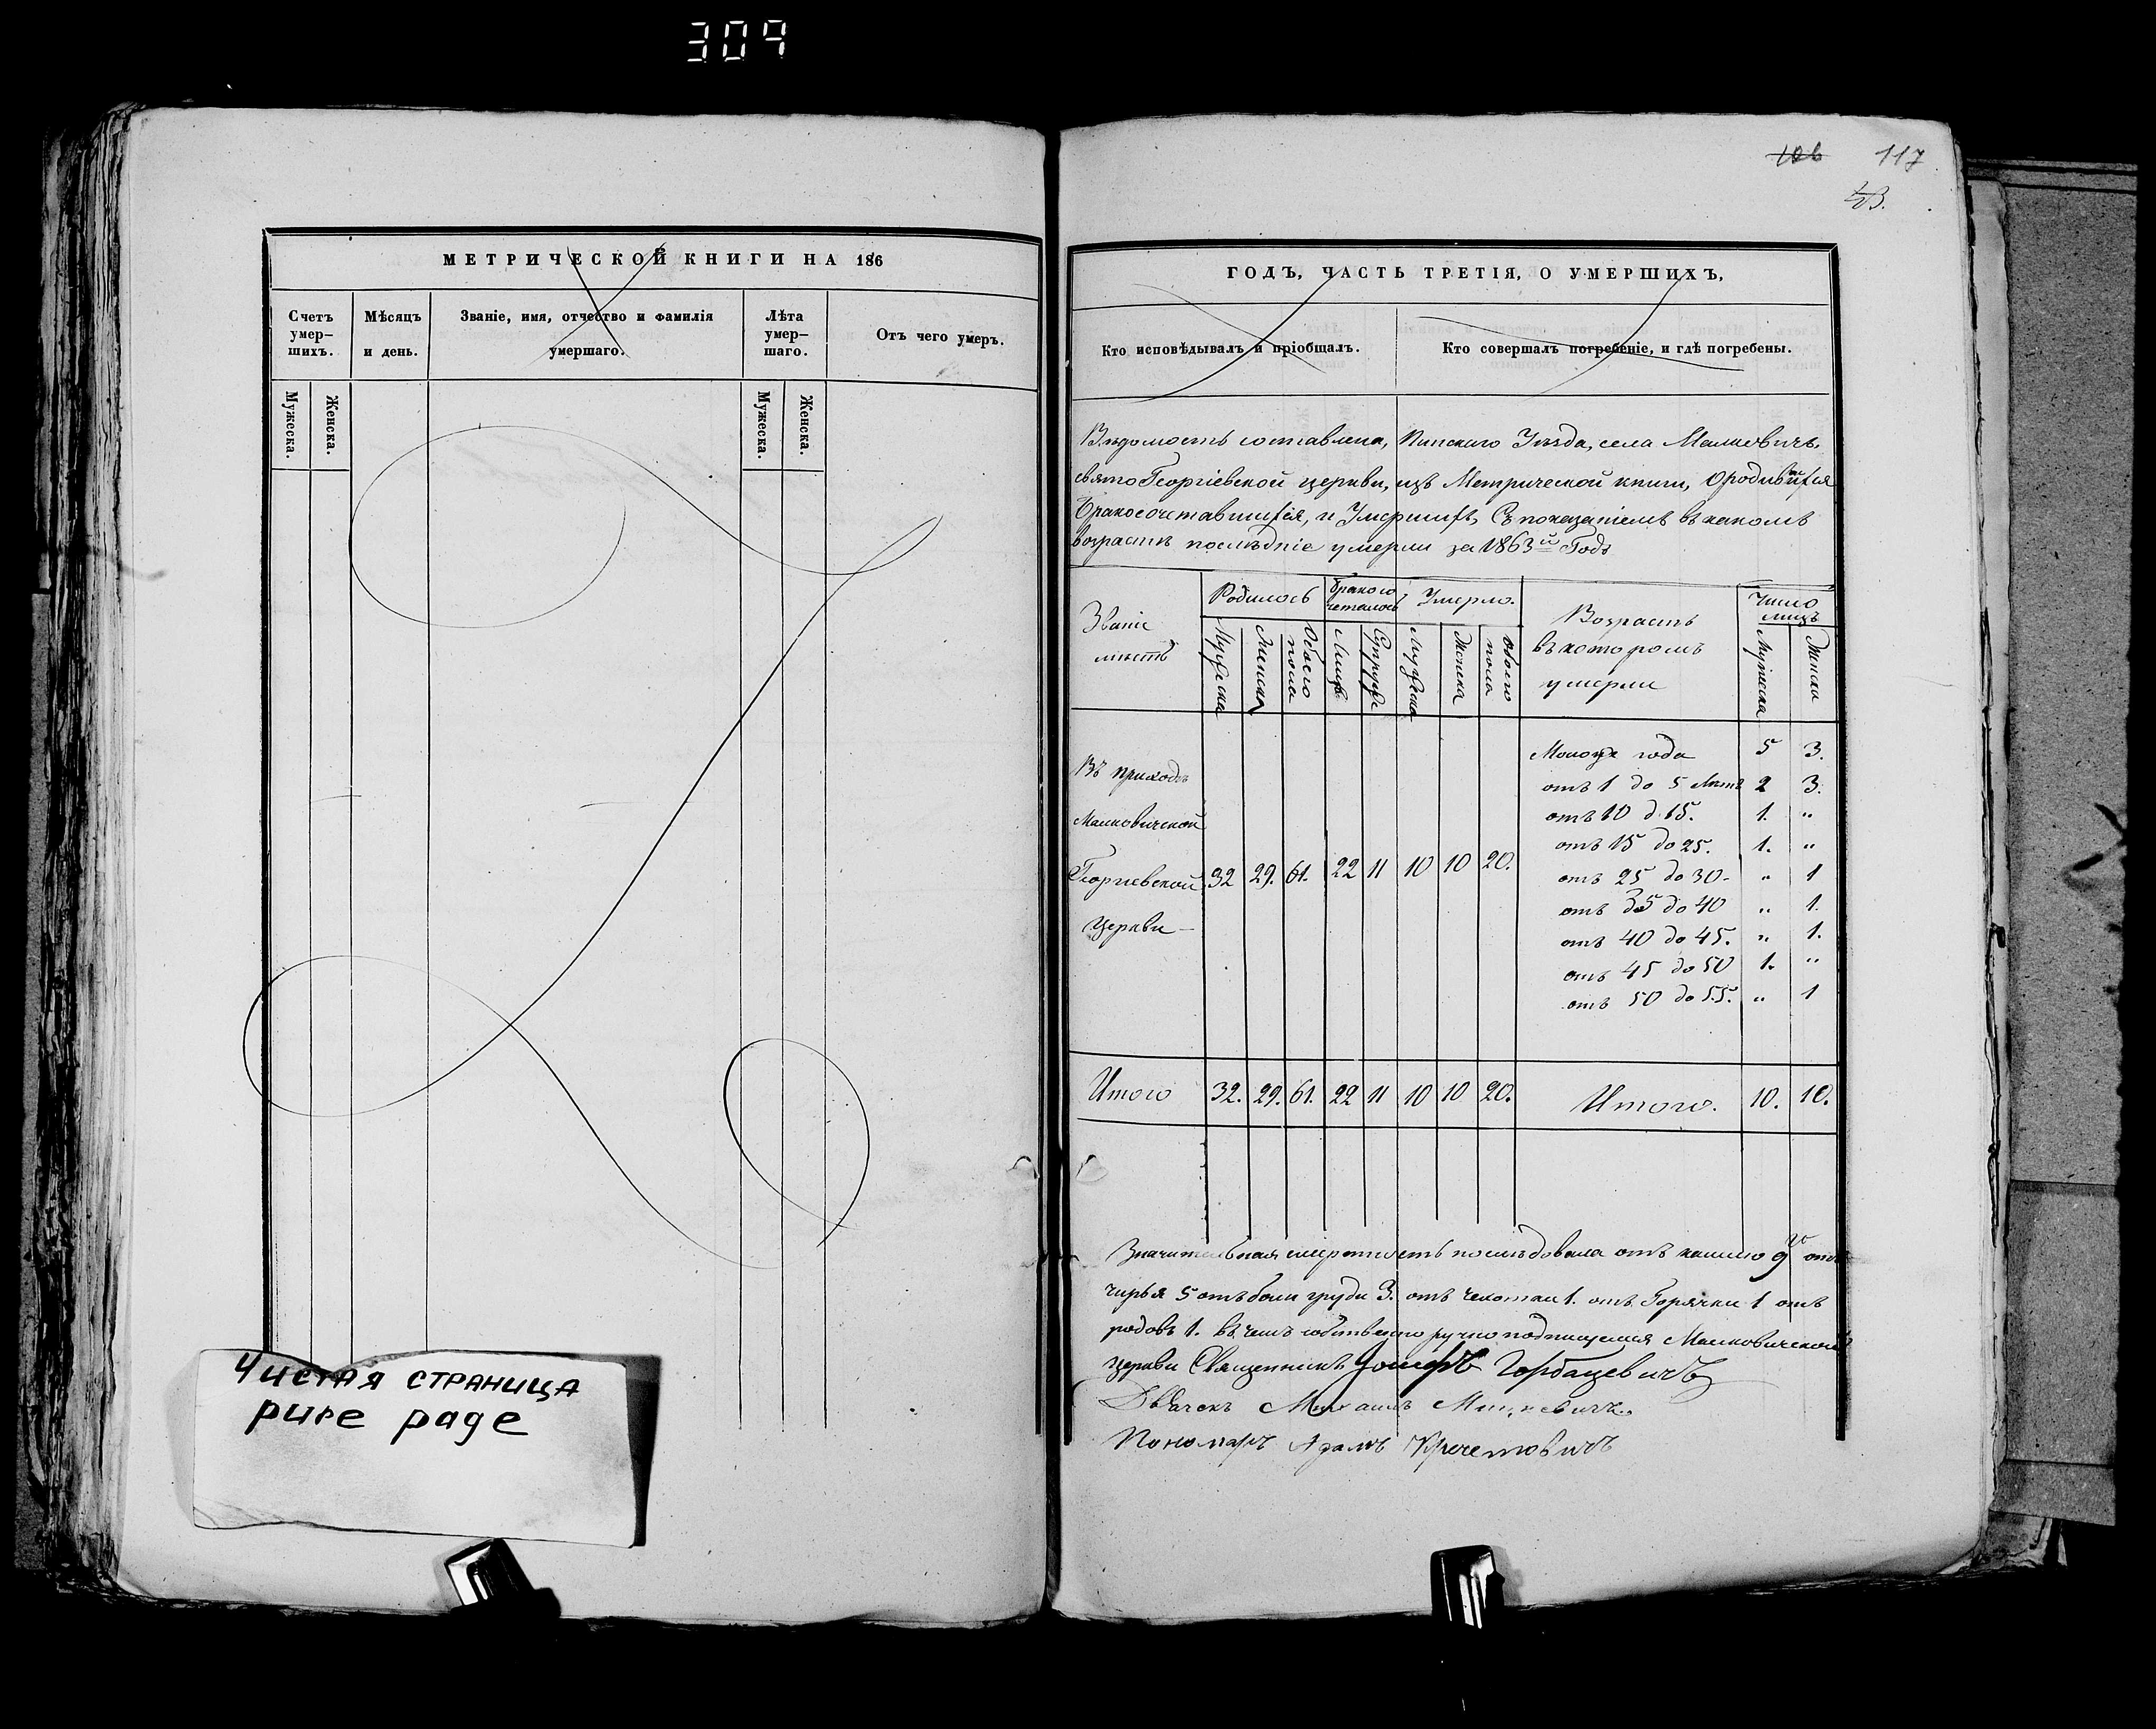 309
МЕТРИЧЕСКОЙ КНИГИ НА 186
Счетъ умер-шихъ.
Мѣсяцъ и день.
Званіе, имя, отчество и фамилія умершаго.
Лѣта умер-шаго.
Отъ чего умеръ.
Мужеска.
Женска.
Мужеска.
Женска.
Чистая страница
pure page
117
ГОДЪ, ЧАСТЬ ТРЕТІЯ, О УМЕРШИХЪ,
Кто исповѣдывалъ и пріобщалъ.
Кто совершалъ погребеніе, и гдѣ погребены.
Вѣдомость составлена, Пинскаго Уѣзда, села Малковичъ,
свято Георгіевской церкви, изъ Метрической книги, о родившихся
Бракосочетавшихся, и Умершихъ, Съ показаніемъ въ какомъ
возрастѣ послѣдніе умерли за 1863й Годъ
Званіе мѣстъ
Родилось
Бракосочеталось
Умерло.
Возрастъ въ которомъ умерли
Число лицъ
Мужеска
Женска
Обоего пола
Лицъ
Супруж
Мужеска
Женска
Обоего пола
Мужеска
Женска
Въ приходѣ
Малковичской
Георгіевской 32 29. 61. 22 11 10 10 20.
Церкви
Моложе года 5 3.
отъ 1 до 5 лѣтъ 2 3.
отъ 10 д 15. 1. "
отъ 15 до 25. 1. "
отъ 25 до 30- " 1
отъ 35 до 40 " 1.
отъ 40 до 45. " 1.
отъ 45 до 50 1. "
отъ 50 до 55. " 1
Итого 32. 29. 61. 22 11 10 10 20. Итого. 10. 10.
Значительная смертность послѣдовала отъ кашлю 9 отъ
чирья 5 отъ боли груди 3. отъ чехотки 1. отъ Горячки 1 отъ
родовъ 1. въ чемъ собственно ручно подпишемся Малковичской
церкви Священникъ Іосифъ Горбацевичъ
Дьячекъ Михаилъ
Пономарь Адамъ Кречетовичъ